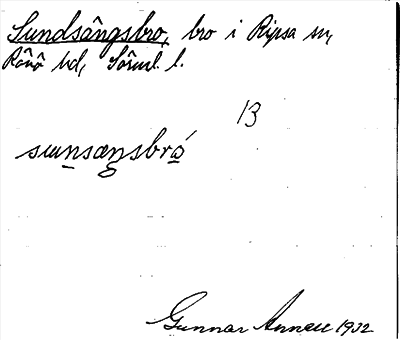 Sundsängsbro, bro i Ripsa sn,
Rönö hd, Sörml. l.
13
sɯnsæŋsbró
Gunnar Annell 1932